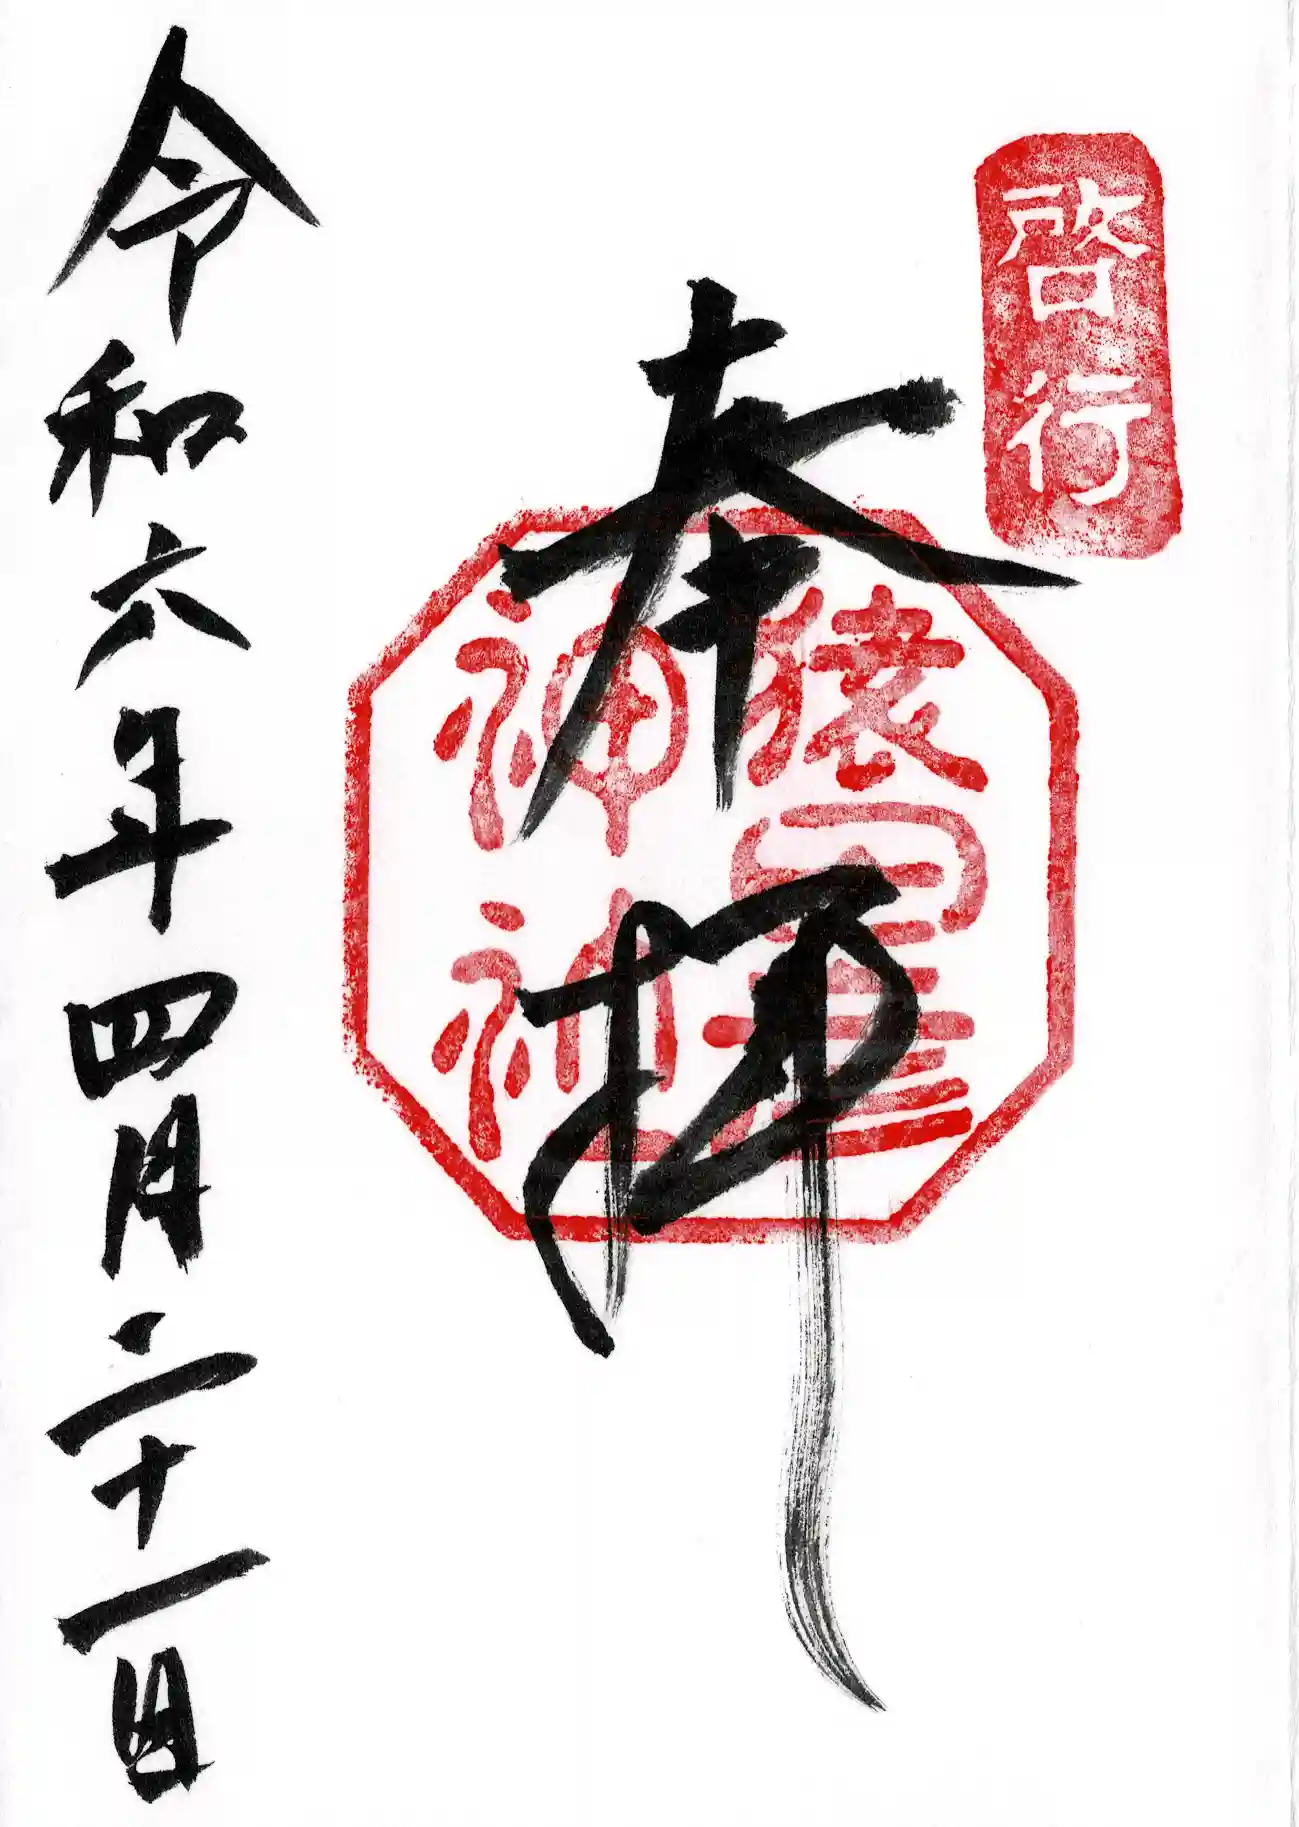 啓行
奉拝
猿田彦
神社
令和六年四月二十一日